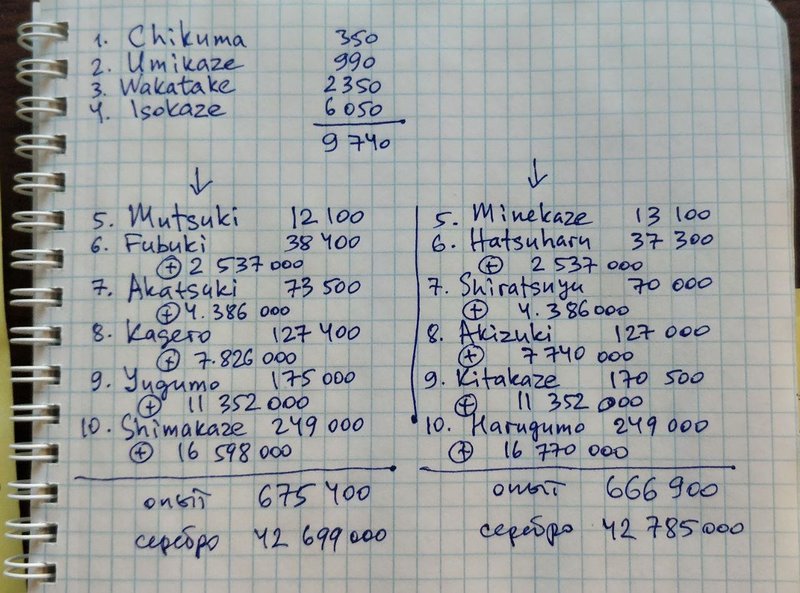 1. Chikuma 350
2. Umikaze 990
3. Wakatake 2350
4. Isokaze 6 050
9 740
5. Mutsuki 12 100
6. Fubuki 38 400
+ 2 537 000
7. Akatsuki 73 500
+ 4.386 000
8. Kagero 127 400
+ 7.826 000
9. Yugumo 175 000
+ 11 352 000
10. Shimakaze 249 000
+ 16 598 000
опыт 675 400
серебро 42 699 000
5. Minekaze 13 100
6. Hatsuharu 37 300
+ 2 537 000
7. Shiratsuyu 70 000
+ 4.386 000
8. Akizuki 127 000
+ 7 740 000
9. Kitakaze 170 500
+ 11 352 000
10. Harugumo 249 000
+ 16 770 000
опыт 666 900
серебро 42 785 000